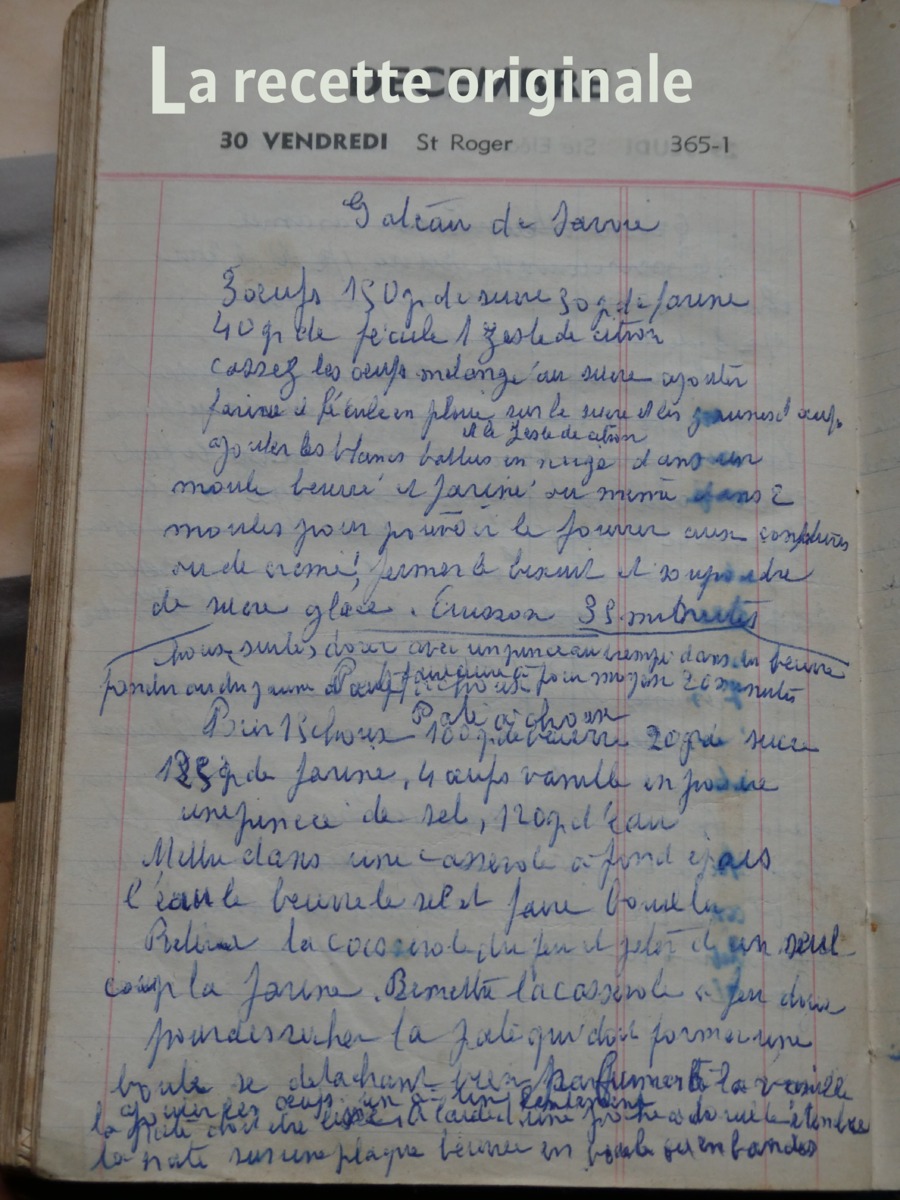 La recette originale
DECEMBRE
30 VENDREDI St Roger 365-1
Gateau de Savoie
3 oeufs 150 gr de sucre 30 g de farine
40 gr de fécule 1 zeste de citron
cassez les oeufs melange au sucre ajouter
farine et fécule en pluie sur le sucre et les jaunes d'oeufs
et le zeste de citron
ajouter les blancs battus en neige dans un
moule beurré et fariné ou meme dans 2
moules pour pouvoir le fourrer aux confitures
ou de creme, fermer le biscuit et soupoudre
de sucre glace. Cuisson 35 minutes
choux sur les dorer avec un pinceau trempé dans du beurre
fondu ou du jaune d'oeuf pour 20 minutes
Pate à choux
Pour 15 choux 100 gr de beurre 20 gr de sucre
125 gr de farine, 4 oeufs vanille en poudre
une pincée de sel, 120 gr d'eau
Mettre dans une casserole à fond épais
l'eau le beurre le sel et faire bouillir
Retirer la casserole du feu et jeter d'un seul
coup la farine. Remettre la casserole à feu doux
pour dessecher la pate qui doit former une
boule se detachant bien parfumer à la vanille
ajouter les oeufs un à un
la pate doit etre lisse à l'aide d'une poche à douille étendre
la pate sur une plaque beurrée en boule ou en bandes